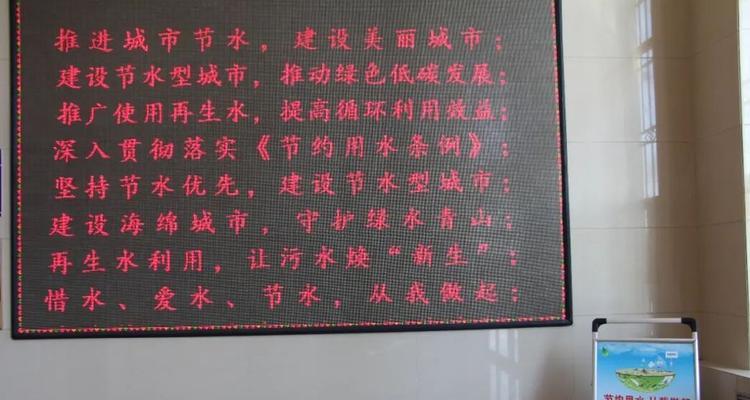 推进城市节水，建设美丽城市；
建设节水型城市，推动绿色低碳发展；
推广使用再生水，提高循环利用效益；
深入贯彻落实《节约用水条例》；
坚持节水优先，建设节水型城市；
建设海绵城市，守护绿水青山；
再生水利用，让污水焕“新生”；
惜水、爱水、节水，从我做起；
节约用水 从